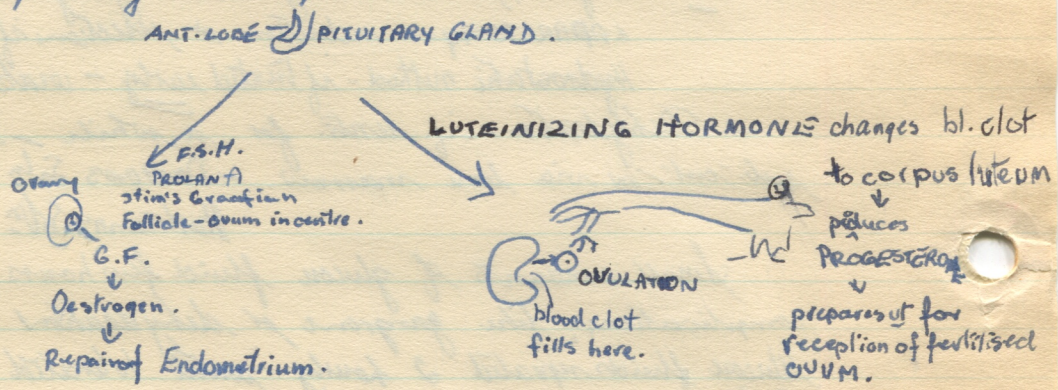 ANT. LOBE PITUITARY GLAND.
F.S.H.
PROLAN A
stim's Graafian
Follicle - ovum in centre.
Ovary
G.F.
Oestrogen.
Repair of Endometrium.
LUTEINIZING HORMONE changes bl. clot
to corpus luteum
produces
PROGESTERONE
prepares ut for
reception of fertilised
OVUM.
OVULATION
blood clot
fills here.